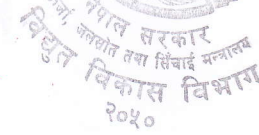 नेपाल सरकार
जलस्रोत तथा सिंचाई मन्त्रालय
विद्युत विकास विभाग
२०५०